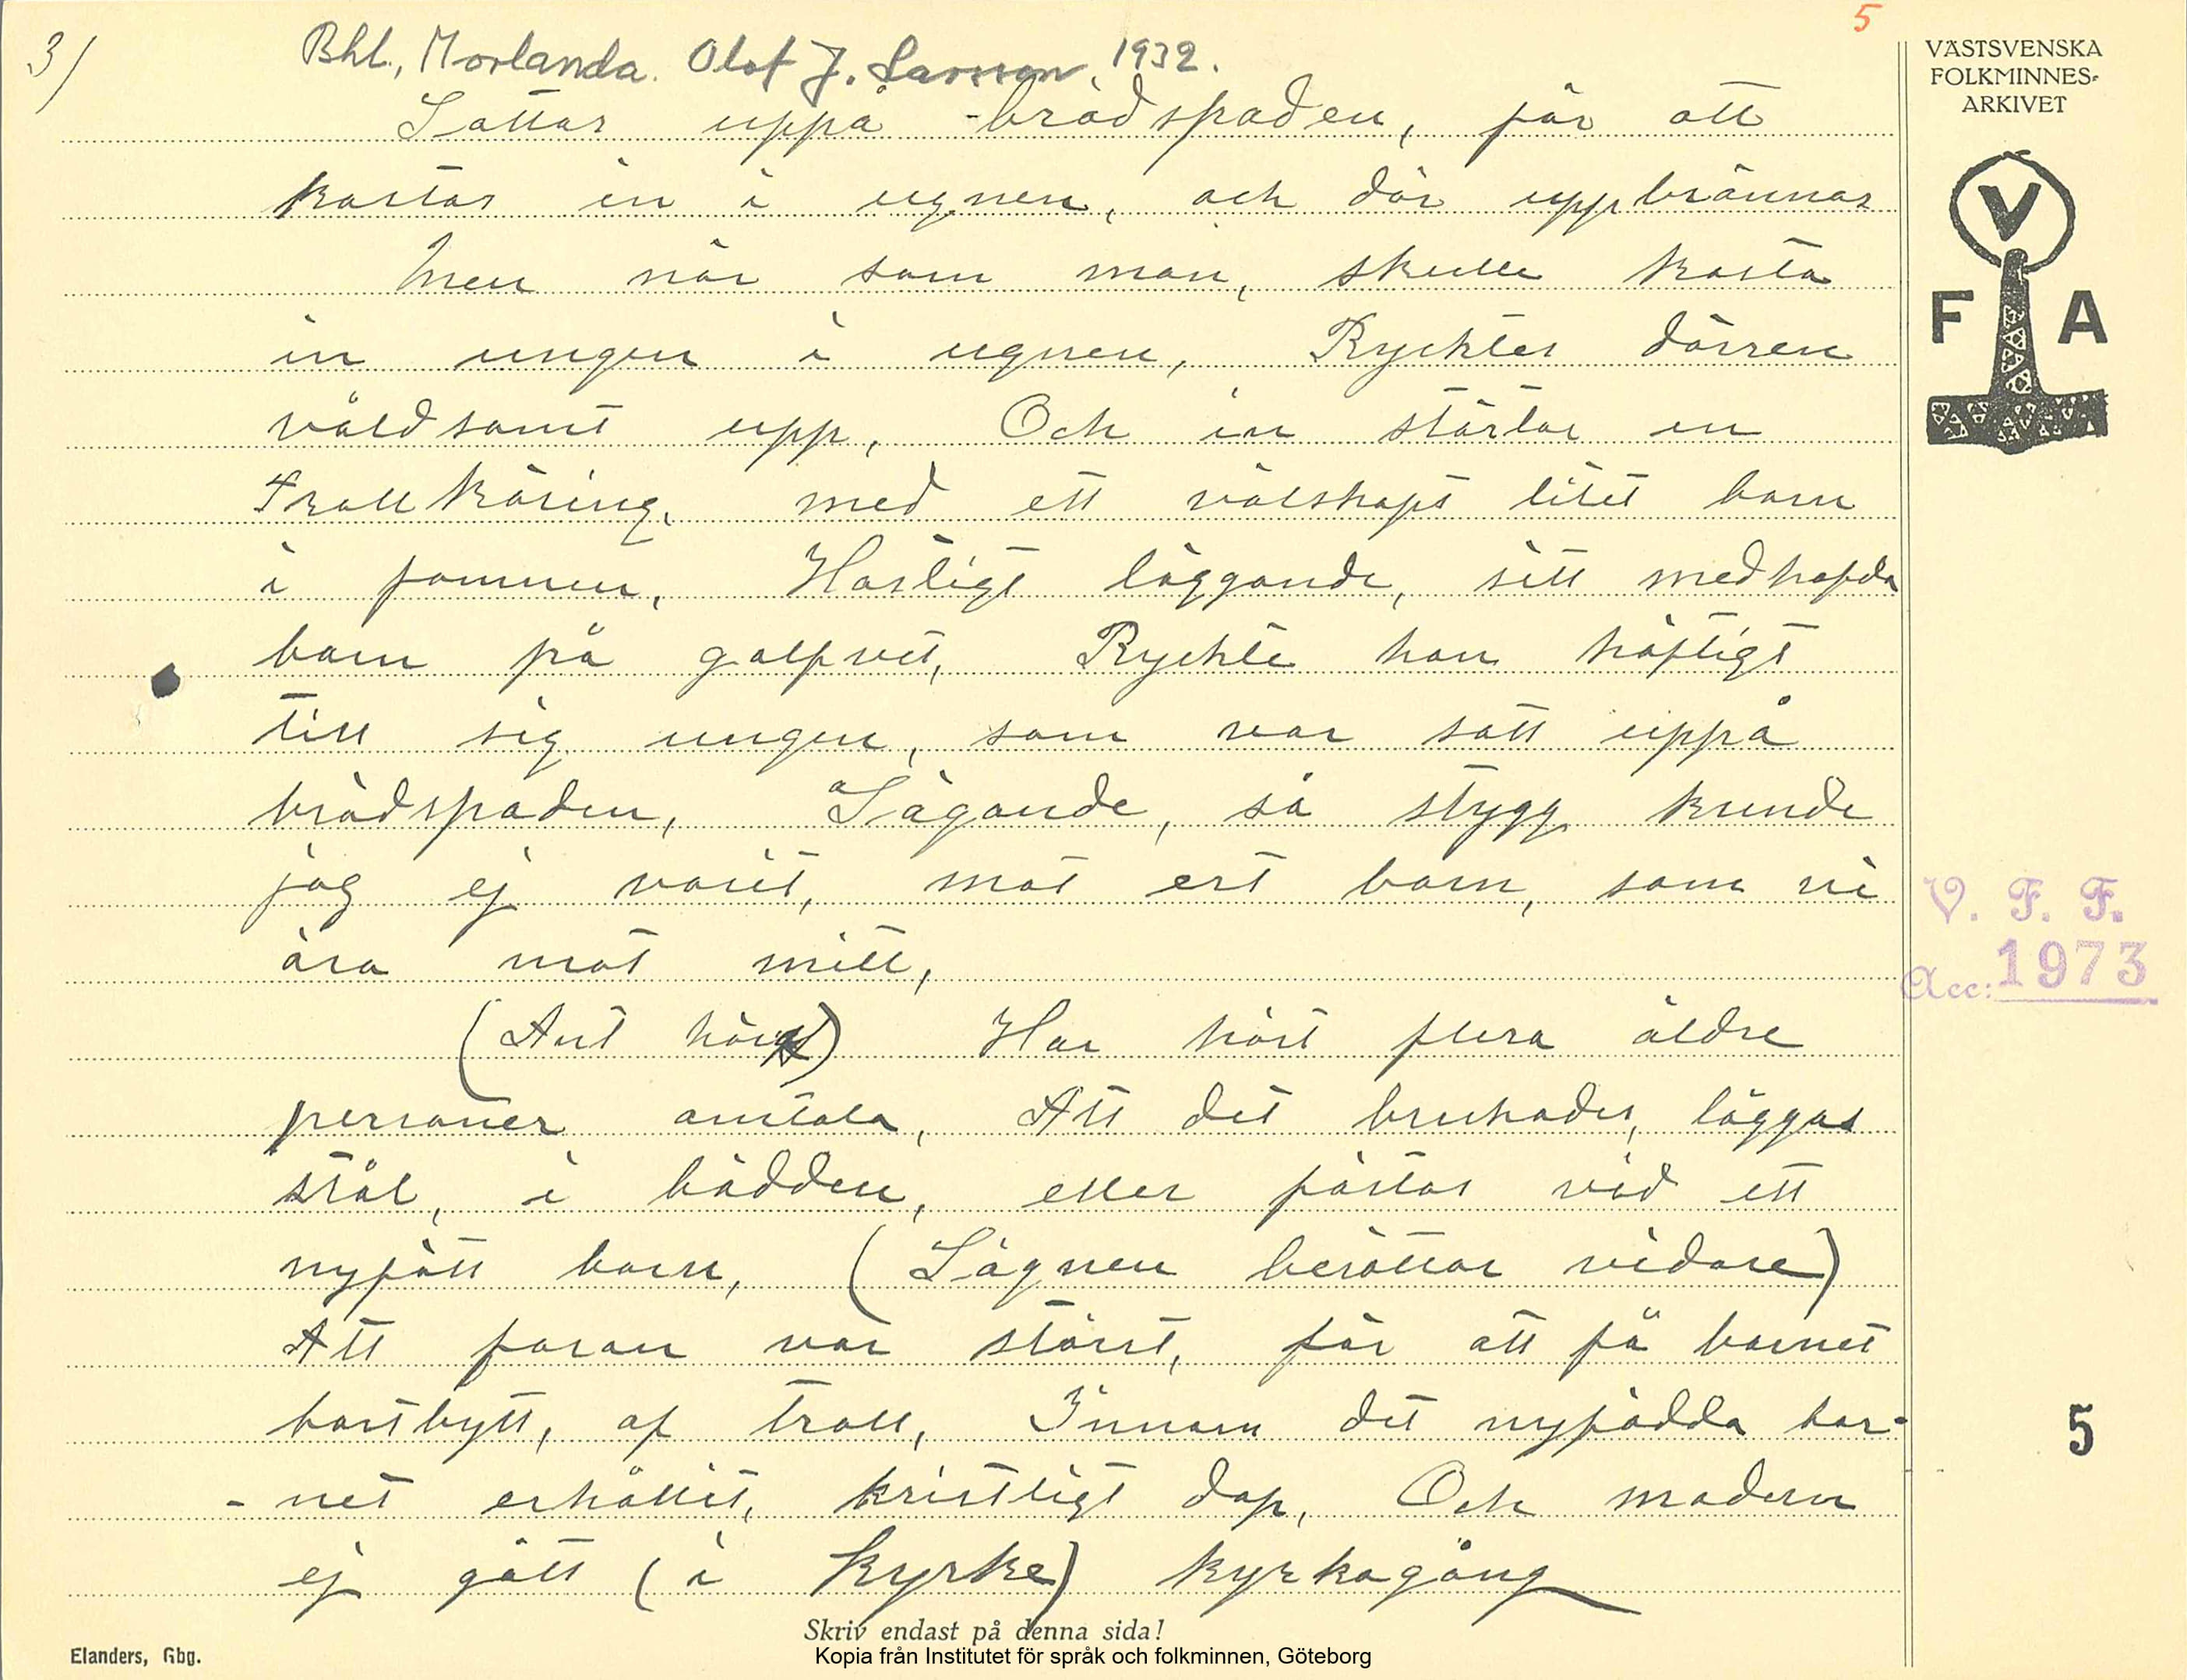 3/
Bhl., Morlanda. Olof J. Larsson. 1932.
5
VÄSTSVENSKA
FOLKMINNES-
ARKIVET
V
F A
Sättas uppå brödspaden, för att
kastas in i ugnen, och där uppbrännas
Men när som man, skulle kasta
in ungen i ugnen, Rycktes dörren
våldsamt upp, Och in störtar en
Trollkäring, med ett välskapt litet barn
i famnen, Hastigt läggande, sitt medhafda
barn på golfvet, Ryckte hon häftigt
till sig ungen, som var satt uppå
brödspaden, Sägande, så stygg kunde
jag ej varit, mot ert barn, som ni
ära mot mitt,
(Ant Har hört flera äldre
personer omtala, Att det brukades, läggas
stål, i bädden, eller fästas vid ett
nyfött barn, (Sägnen berättar vidare)
Att faran var störst, för att få barnet
bortbytt, af troll, Innan det nyfödda bar-
-net erhållit, kristligt dop, Och modern
ej gått (i kyrke) kyrkogång
V. F. F.
Acc: 1973
5
Skriv endast på denna sida!
Elanders, Gbg.
Kopia från Institutet för språk och folkminnen, Göteborg